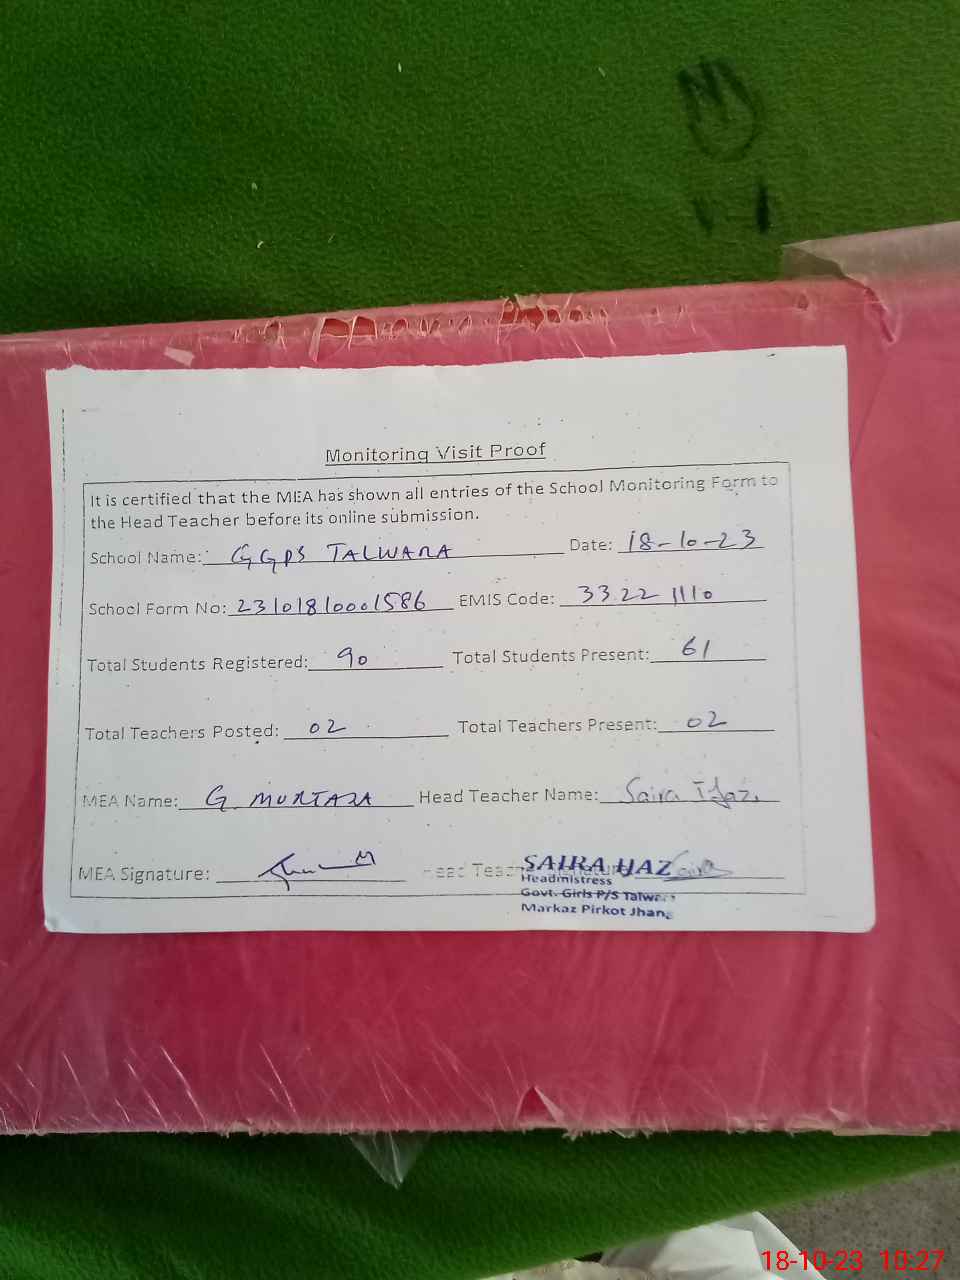 Monitoring Visit Proof
It is certified that the MEA has shown all entries of the School Monitoring Form to
the Head Teacher before its online submission.
School Name: GGPS TALWARA Date: 18-10-23
School Form No: 23101810001586 EMIS Code: 33221110
Total Students Registered: 90 Total Students Present: 61
Total Teachers Posted: 02 Total Teachers Present: 02
MEA Name: G. MURTAZA Head Teacher Name: Saira Ijaz
MEA Signature: Head Teacher Signature: Saira
SAIRA IJAZ
Headmistress
Govt. Girls P/S Talwara
Markaz Pirkot Jhang
18-10-23 10:27